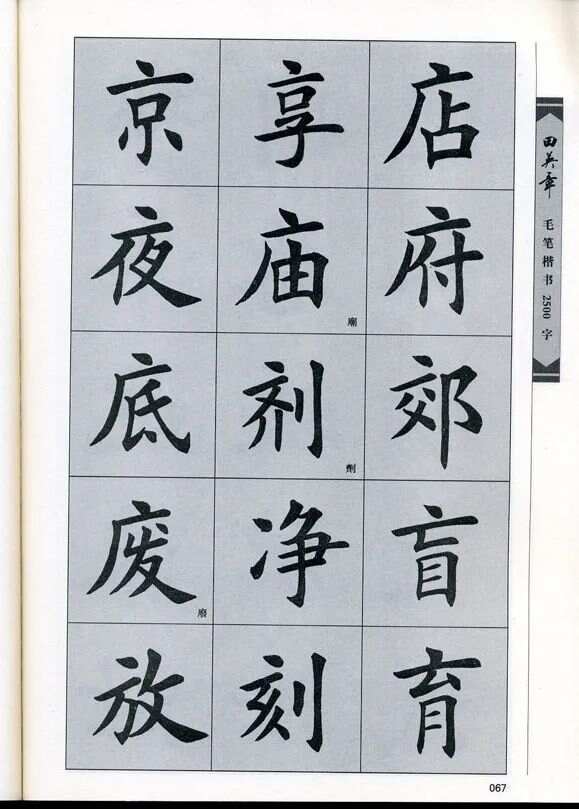 京 享 店
夜 庙 府
廟
底 剂 郊
劑
废 净 盲
廢
放 刻 育
田英章
毛笔楷书2500字
067